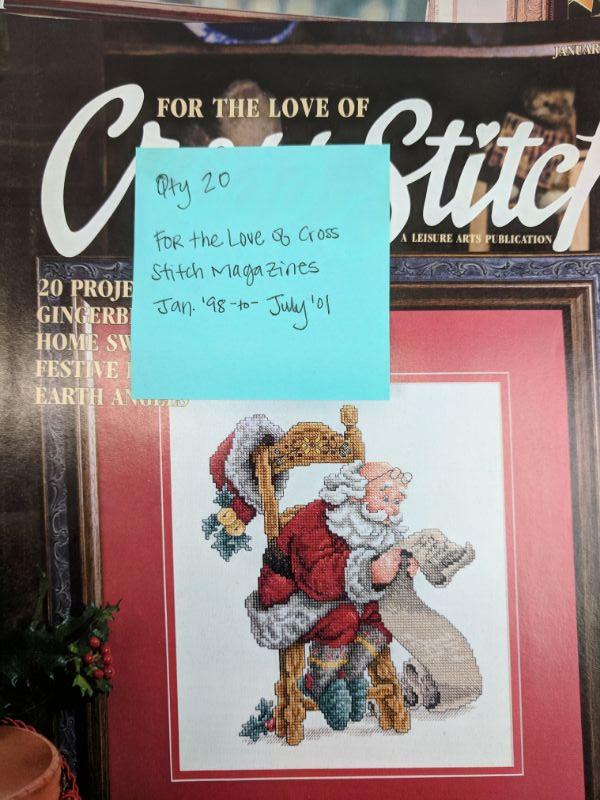 JANUAR
FOR THE LOVE OF
Cross Stitch
A LEISURE ARTS PUBLICATION
Qty 20
For the Love of Cross
Stitch Magazines
Jan. '98 -to- July '01
20 PROJE
GINGERB
HOME SW
FESTIVE
EARTH ANGELS